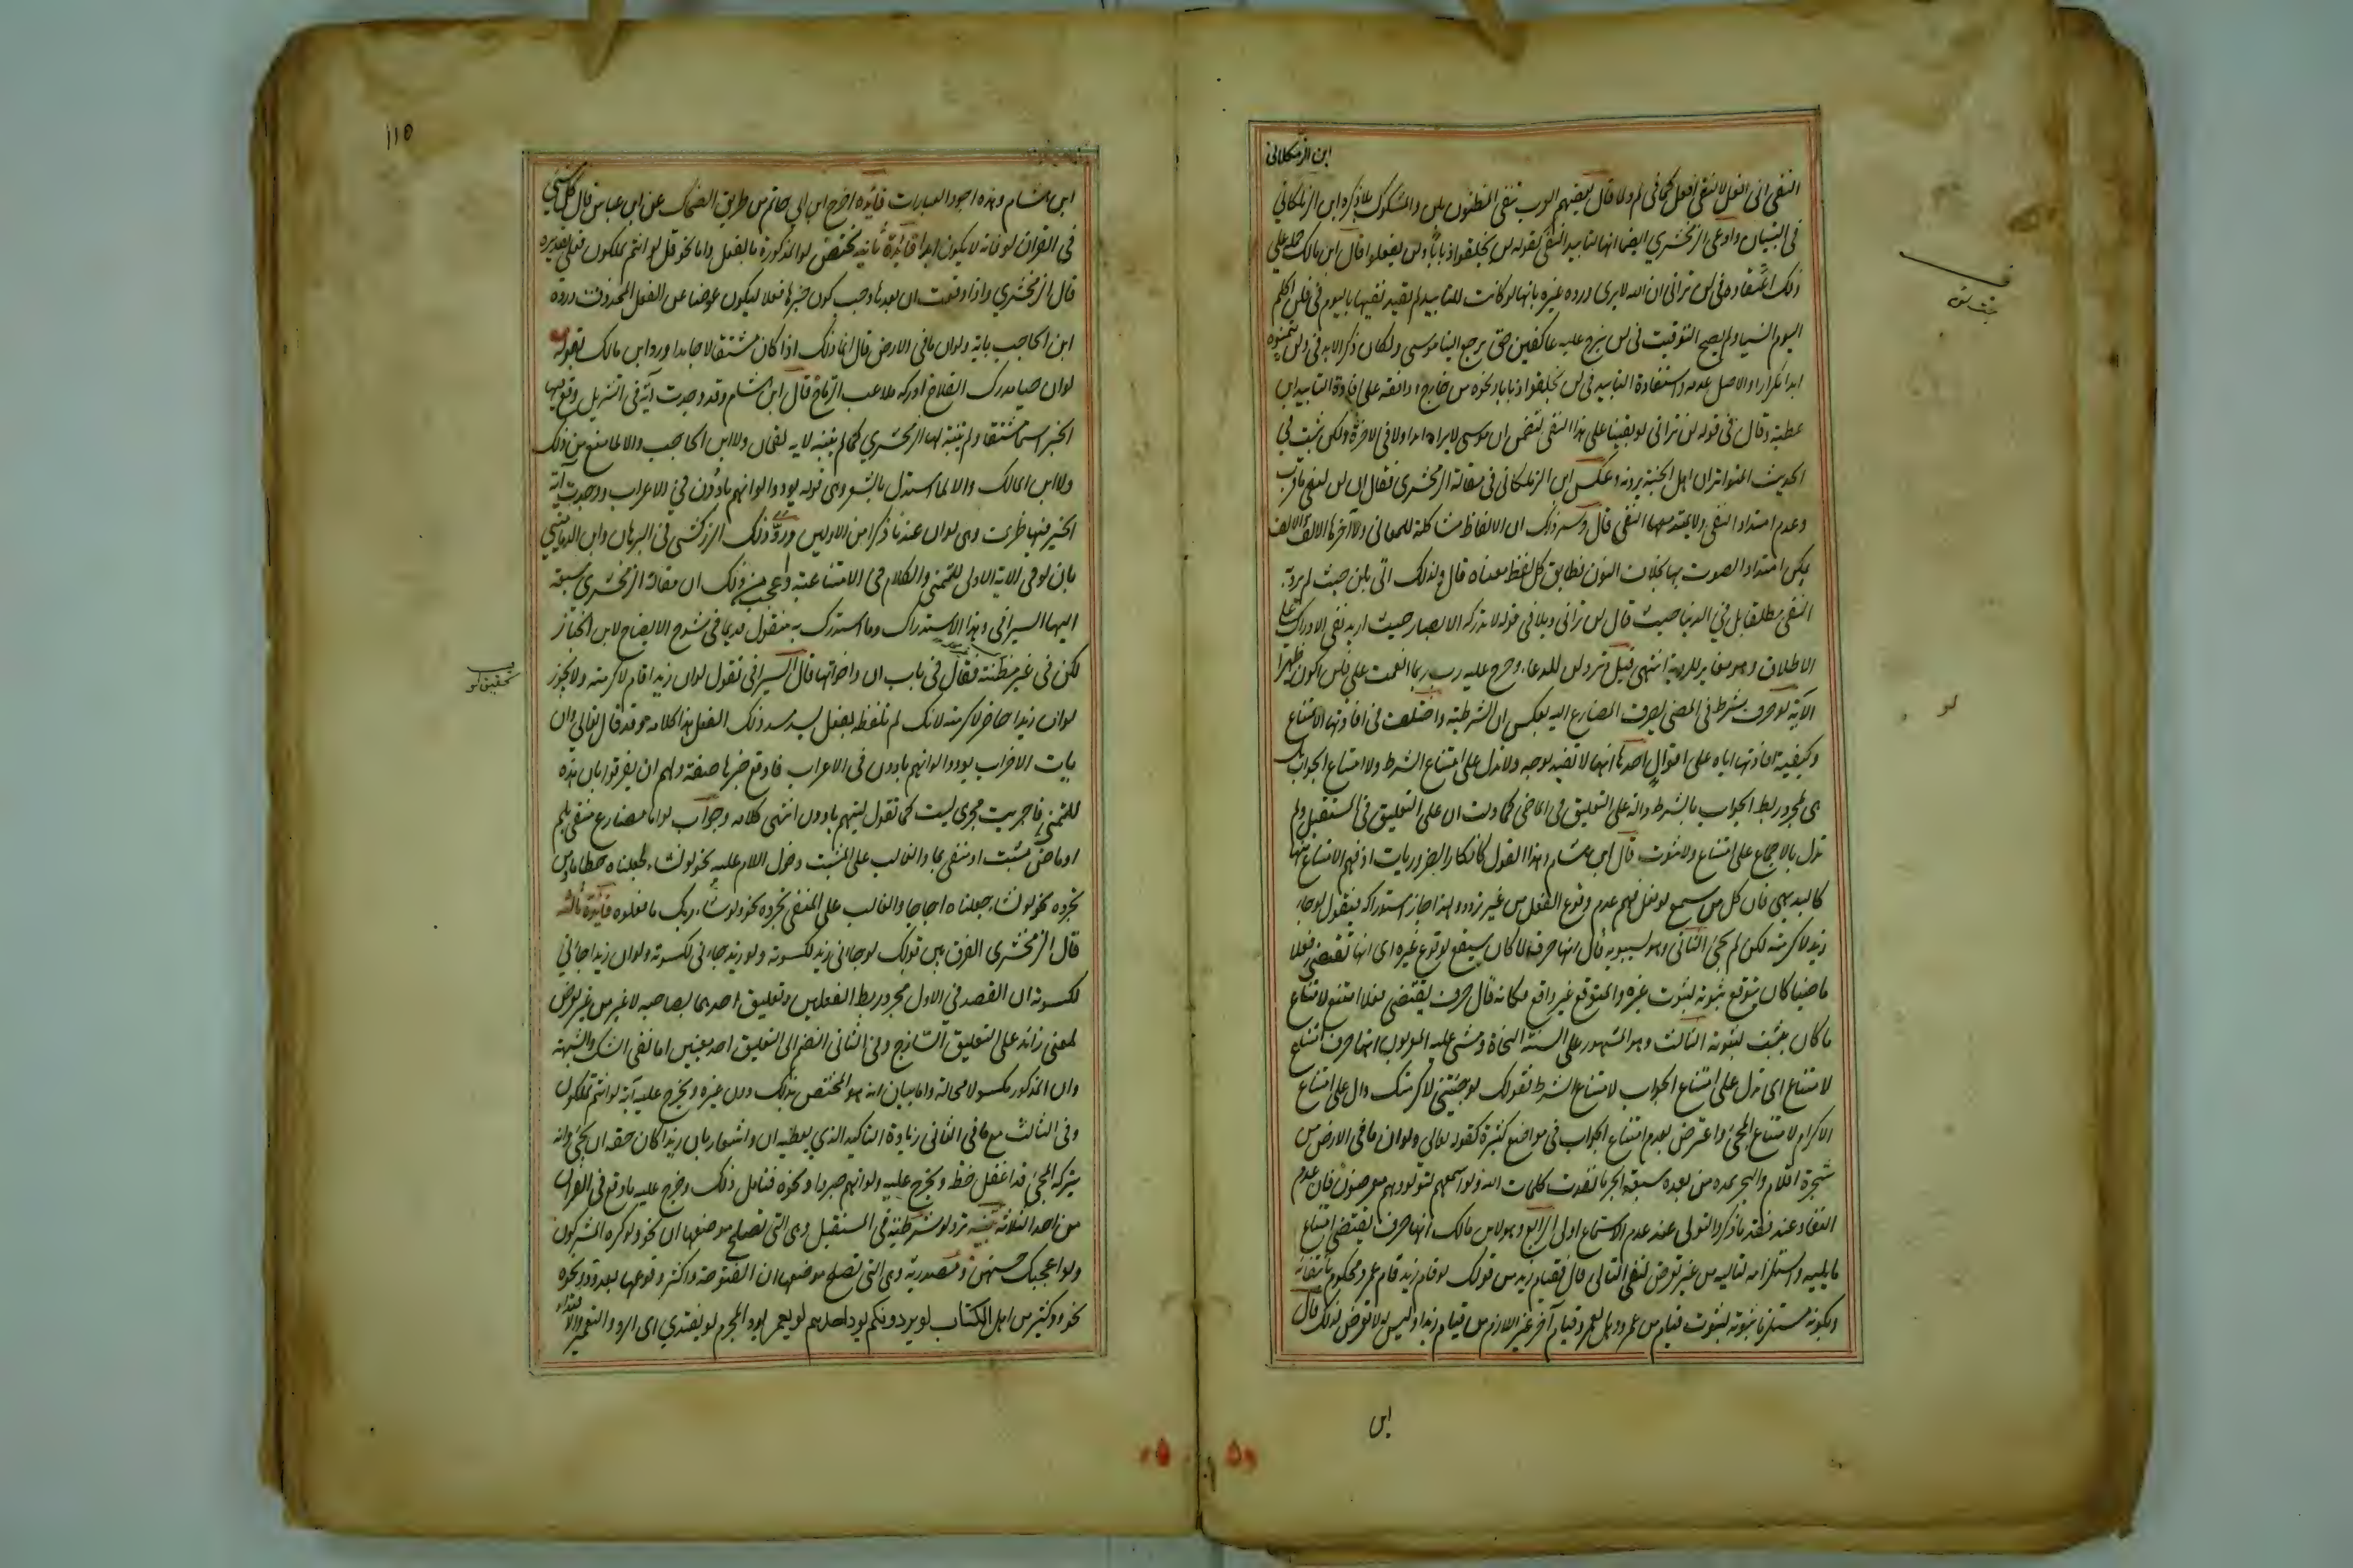 ابن الزملكاني
النفي اني افعل لا لنفي افعل كما في لم ولا قال بعضهم العرب تنفي المظنون بلن والمشكوك بلا ذكره ابن الزملكاني
في التبيان وادعى الزمخشري ايضا انها لتابيد النفي كقوله لن يخلقوا ذبابا ولن تفعلوا قال ابن مالك حمله على
ذلك اعتقاده في لن تراني ان الله لا يرى ورده غيره بانها لو كانت للتابيد لم يقيد نفيها باليوم في فلن اكلم
اليوم انسيا ولم يصح التوقيت في لن نبرح عليه عاكفين حتى يرجع الينا موسى ولكان ذكر الابد في ولن يتمنوه
ابدا تكرارا والاصل عدمه واستفادة التابيد في لن يخلقوا ذبابا ونحوه من خارج ووافقه على افادة التابيد ابن
عطية وقال في قوله لن تراني لو بقينا على هذا النفي لتضمن ان موسى لا يراه ابدا ولا في الاخرة ولكن ثبت في
الحديث المتواتر ان اهل الجنة يرونه وعكس ابن الزملكاني في مقالة الزمخشري فقال ان لن لنفي ما قرب
وعدم امتداد النفي ولا يمتد معها النفي قال وسر ذلك ان الالفاظ مشاكلة للمعاني ولا اخرها الالف والالف
يمكن امتداد الصوت بها بخلاف النون فطابق كل لفظ معناه قال ولذلك اتى بلن حيث لم يرد به
النفي مطلقا بل في الدنيا حيث قال لن تراني وبلا في قوله لا تدركه الابصار حيث اريد نفي الادراك على
الاطلاق وهو مغاير للرؤية انتهى قيل وترد لن للدعاء وخرج عليه رب بما انعمت علي فلن اكون ظهيرا
الآية لو حرف شرط في المضي يصرف المضارع اليه بعكس ان الشرطية واختلفت في افادتها الامتناع
وكيفية افادتها اياه على اقوال احدها انها لا تفيد بوجه ولا تدل على امتناع الشرط ولا امتناع الجواب بل
هي لمجرد ربط الجواب بالشرط دالة على التعليق في الماضي كما دلت ان على التعليق في المستقبل ولم
تدل بالاجماع على امتناع ولا ثبوت قال ابن هشام وهذا القول كانكار الضروريات اذ فهم الامتناع منها
كالبديهي فان كل من سمع لو فعل فهم عدم وقوع الفعل من غير تردد ولهذا جاز استدراكه فنقول لو جاء
زيد لاكرمته لكن لم يجئ الثاني وهو لسيبويه قال انها حرف لما كان سيقع لوقوع غيره اى انها تقتضي فعلا
ماضيا كان يتوقع ثبوته لثبوت غيره والمتوقع غير واقع فكانه قال حرف يقتضي فعلا امتنع لامتناع
ما كان يثبت لثبوته الثالث وهو المشهور على السنة النحاة ومشى عليه المعربون انها حرف امتناع
لامتناع اى تدل على امتناع الجواب لامتناع الشرط فقولك لو جئتني لاكرمتك دال على امتناع
الاكرام لامتناع المجئ واعترض بعدم امتناع الجواب في مواضع كثيرة كقوله تعالى ولو ان ما في الارض من
شجرة اقلام والبحر يمده من بعده سبعة ابحر ما نفدت كلمات الله ولو اسمعهم لتولوا وهم معرضون فان عدم
النفاد عند فقد ما ذكر والتولي عند عدم الاسماع اولى الرابع وهو لابن مالك انها حرف يقتضي امتناع
ما يليه واستلزامه لتاليه من غير تعرض لنفي التالي قال فقيام زيد من قولك لو قام زيد قام عمرو محكوم بانتفائه
وبكونه مستلزما ثبوته لثبوت قيام من عمرو وهل لعمرو قيام آخر غير اللازم من قيام زيد او ليس له لا تعرض لذلك قال
ابن
لو
١١٥
ابن هشام وهذه اجود العبارات فائدة اخرج ابن ابي حاتم من طريق الضحاك عن ابن عباس قال كل شئ
في القران لو فانه لا يكون ابدا فائدة ثانية تختص لو المذكورة بالفعل واما نحو قل لو انتم تملكون فعلى تقديره
قال الزمخشري واذا وقعت ان بعدها وجب كون خبرها فعلا ليكون عوضا عن الفعل المحذوف ورده
ابن الحاجب باية ولو ان ما في الارض قال انما ذلك اذا كان مشتقا لا جامدا ورده ابن مالك بقوله
لو ان حيا مدرك الفلاح ادركه ملاعب الرماح قال ابن هشام وقد وجدت آية في التنزيل وقع فيها
الخبر اسما مشتقا ولم يتنبه لها الزمخشري كما لم يتنبه لاية لقمان ولا ابن الحاجب والا لما منع من ذلك
ولا ابن مالك والا لما استدل بالشعر وهي قوله يودوا لو انهم بادون في الاعراب ووجدت آية
الخبر فيها ظرف وهي لو ان عندنا ذكرا من الاولين ورد ذلك الزركشي في البرهان وابن الدماميني
بان لو في الاية الاولى للتمني والكلام في الامتناعية واعجب من ذلك ان مقالة الزمخشري سبقه
اليها السيرافي وهذا الاستدراك وما استدرك به منقول قديما في شرح الايضاح لابن الخباز
لكن في غير مظنته فقال في باب ان واخواتها قال السيرافي تقول لو ان زيدا قام لاكرمته ولا يجوز
لو ان زيدا حاضر لاكرمته لانك لم تلفظ بفعل يسد مسد ذلك الفعل هذا كلامه وقد قال تعالى وان
يات الاحزاب يودوا لو انهم بادون في الاعراب فاوقع خبرها صفة ولهم ان يفرقوا بان هذه
للتمني فاجريت مجرى ليت كما تقول ليتهم بادون انتهى كلامه وجواب لو اما مضارع منفي بلم
او ماض مثبت او منفي بما والغالب على المثبت دخول اللام عليه نحو لو نشاء لجعلناه حطاما ومن
تجرده نحو لو نشاء جعلناه اجاجا والغالب على المنفي تجرده نحو ولو شاء ربك ما فعلوه فائدة ثالثة
قال الزمخشري الفرق بين قولك لو جاءني زيد لكسوته ولو زيد جاءني لكسوته ولو ان زيدا جاءني
لكسوته ان القصد في الاول مجرد ربط الفعلين وتعليق احدهما بصاحبه لا غير من غير تعرض
لمعنى زائد على التعليق الساذج وفي الثاني انضم الى التعليق احد معنيين اما نفي الشك والشبهة
وان المذكور مكسو لا محالة واما بيان انه هو المختص بذلك دون غيره ويخرج عليه آية لو انتم تملكون
وفي الثالث مع ما في الثاني زيادة التاكيد الذي يعطيه ان واشعار بان زيدا كان حقه ان يجئ وانه
بتركه المجئ قد اغفل حظه ويخرج عليه ولو انهم صبروا ونحوه فتامل ذلك وخرج عليه ما وقع في القران
من احد الثلاثة تنبيه ترد لو شرطية في المستقبل وهي التي تصلح موضعها ان نحو ولو كره المشركون
ولو اعجبك حسنهن ومصدرية وهي التي تصلح موضعها ان المفتوحة واكثر وقوعها بعد ود ونحوه
نحو ود كثير من اهل الكتاب لو يردونكم يود احدهم لو يعمر يود المجرم لو يفتدي اى الرد والتعمير والافتداء
تحقيق لو